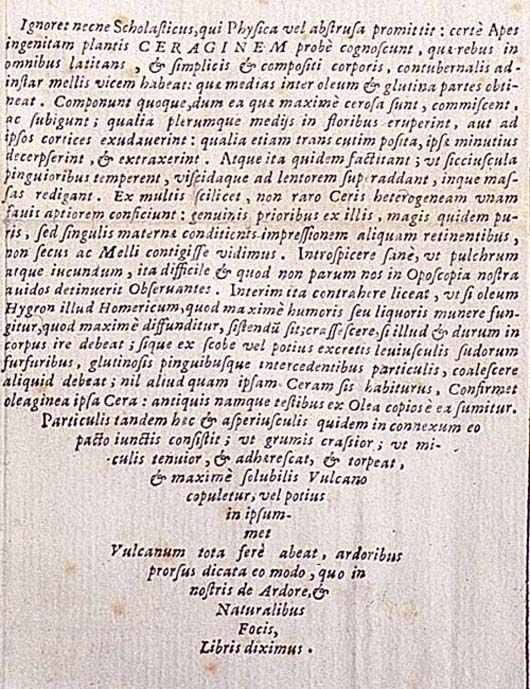 Ignoret necne Scholasticus, qui Physica vel abstrusa promittit : certè Apes
ingenitam plantis CERAGINEM probè cognoscunt, quæ rebus in
omnibus latitans, & simplicis & compositi corporis, contubernalis ad-
instar mellis vicem habeat: quæ medias inter oleum & glutina partes obti-
neat. Componunt quoque, dum ea quæ maximè cerosa sunt, commiscent,
ac subigunt; qualia plerumque medijs in floribus eruperint, aut ad
ipsos cortices exudauerint : qualia etiam trans cutim posita, ipsæ minutius
decerpserint, & extraxerint. Atque ita quidem factitant; vt sicciuscula
pinguioribus temperent, viscidaque ad lentorem superaddant, inque mas-
sas redigant. Ex multis scilicet, non raro Ceris heterogeneam vnam
fauis aptiorem conficiunt: genuinis prioribus ex illis, magis quidem pu-
ris, sed singulis maternæ conditionis impressionem aliquam retinentibus,
non secus ac Melli contigisse vidimus. Introspicere sanè, vt pulchrum
atque iucundum, ita difficile & quod non parum nos in Oposcopia nostra
auidos detinuerit Obseruantes. Interim ita contrahere liceat, vt si oleum
Hygron illud Homericum, quod maximè humoris seu liquoris munere fun-
gitur, quod maximè diffunditur, sistendū sit; crassescere, si illud & durum in
corpus ire debeat; sique ex scobe vel potius excretis leuiusculis sudorum
furfuribus, glutinosis pinguibusque intercedentibus particulis, coalescere
aliquid debeat; nil aliud quam ipsam Ceram sis habiturus, Confirmet
oleaginea ipsa Cera: antiquis namque testibus ex Olea copiosè ea sumitur.
Particulis tandem hæc & asperiusculis quidem in connexum eo
pacto iunctis consistit; vt grumis crassior; vt mi-
culis tenuior, & adhærescat, & torpeat,
& maximè solubilis Vulcano
copuletur, vel potius
in ipsum-
met
Vulcanum tota ferè abeat, ardoribus
prorsus dicata eo modo, quo in
nostris de Ardore, &
Naturalibus
Focis,
Libris diximus.